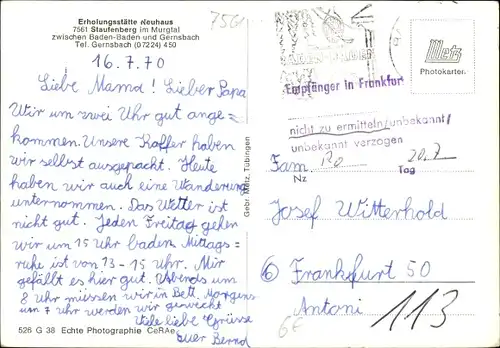 Erholungsstätte Neuhaus
7561 Staufenberg im Murgtal
zwischen Baden-Baden und Gernsbach
Tel. Gernsbach (07224) 450
16.7.70
Liebe Mama! Lieber Papa
Wir um zwei Uhr gut ange=
kommen. Unsere Koffer haben
wir selbst ausgepackt. Heute
haben wir auch eine Wanderung
unternommen. Das Wetter ist
nicht gut. Jeden Freitag gehen
wir um 15 Uhr baden. Mittags=
ruhe ist von 13-15 Uhr. Mir
gefällt es hier gut. Abends um
8 Uhr müssen wir in Bett. Morgens
um 7 Uhr werden wir geweckt
Viele liebe Grüsse
euer Bernd
526 G 38 Echte Photographie CeRAe
Gebr. Metz, Tübingen
7561
Metz
Photokarten
Empfänger in Frankfurt
nicht zu ermitteln/unbekannt/
unbekannt verzogen
Fam. 20.7
Nz Tag
Josef Witterhold
6 Frankfurt 50
Antoni
113
6€